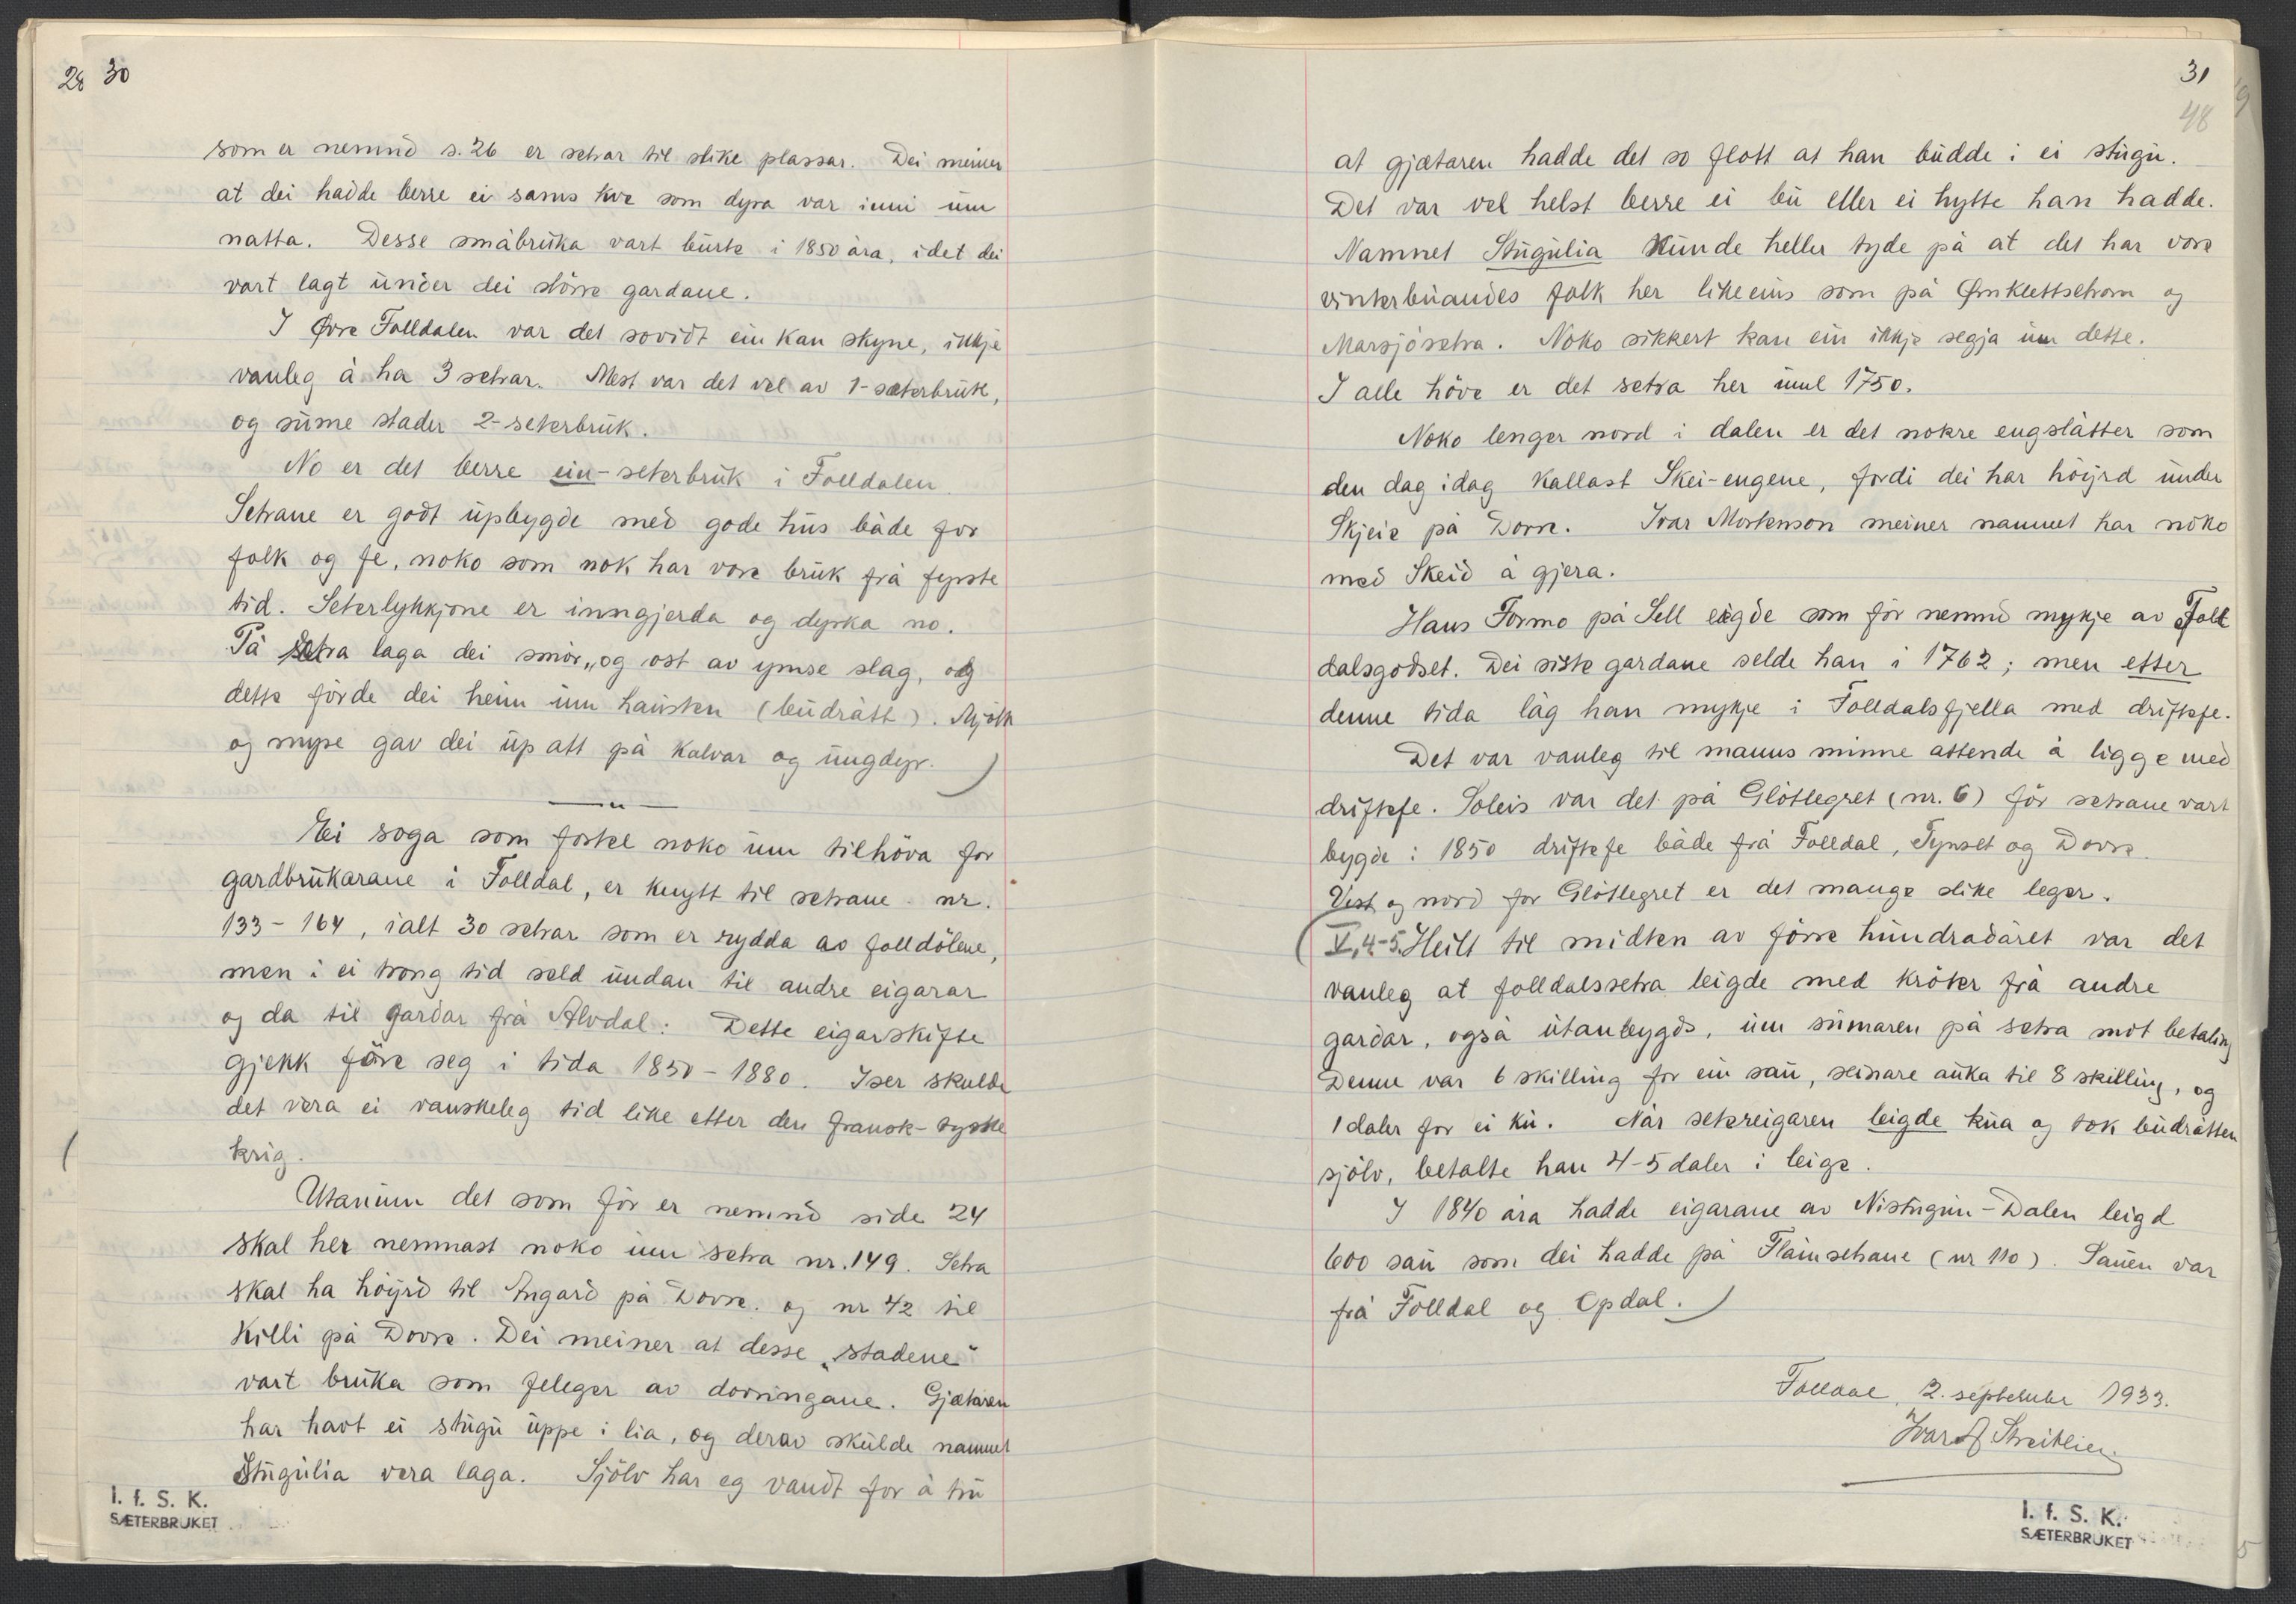 28 30
som er nemnd s. 26 er setrar til slike plassar. Dei meiner
at dei hadde berre ei sams kve som dyra var inni um
natta. Desse småbruka vart burte i 1850 åra, idet dei
vart lagt under dei større gardane.
I Øvre Folldalen var det sovidt ein kan skyne, ikkje
vanleg å ha 3 setrar. Mest var det vel av 1-sæterbruk,
og sume stader 2-seterbruk.
No er det berre ein-seterbruk i Folldalen.
Setrane er godt upbygde med gode hus både for
folk og fe, noko som nok har vore bruk frå fyrste
tid. Seterlykkjone er inngjerda og dyrka no.
På setra laga dei smör, og ost av ymse slag, og
dette förde dei heim um hausten (budrått). Mjölk
og myse gav dei up att på kalvar og ungdyr. )
—〃—
Ei soga som fortel noko um tilhöva for
gardbrukarane i Folldal, er knytt til setrane nr.
133 - 164, ialt 30 setrar som er rydda av folldölene,
men i ei trong tid seld undan til andre eigarar
og da til gardar frå Alvdal. Dette eigarskifte
gjekk före seg i tida 1850 - 1880. Iser skulde
det vera ei vanskeleg tid like etter den fransk-tyske
krig.
(
Utanum det som för er nemnd side 24
skal her nemnast noko um setra nr. 149. Setra
skal ha höyrd til Angard på Dovre. og nr 42 til
Killi på Dovre. Dei meiner at desse „stadene"
vart bruka som feleger av dovringane. Gjætaren
har havt ei stugu uppe i lia, og derav skulde namnet
Stugulia vera laga. Sjölv har eg vandt for å tru
I. f. S. K.
SÆTERBRUKET
31
48
at gjætaren hadde det so flott at han budde i ei stugu.
Det var vel helst berre ei bu eller ei hytte han hadde.
Namnet Stugulia kunde heller tyde på at det har vore
vinterbuandes folk her likeeins som på Ørnklettsetrom og
Marsjösetra. Noko sikkert kan ein ikkje segja um dette.
I alle höve er det setra her uml 1750.
Noko lenger nord i dalen er det nokre engslåtter som
den dag idag kallast Skei-engene, fordi dei har höyrd under
Skjeie på Dovre. Ivar Mortenson meiner namnet har noko
med Skeid å gjera.
Hans Formo på Sell eigde som för nemnd mykje av Foll
dalsgodset. Dei siste gardane selde han i 1762; men etter
denne tida låg han mykje i Folldalsfjella med driftefe.
Det var vanleg til manns minne attende å ligge med
driftefe. Soleis var det på Glötlegret (nr. 6) för setrane vart
bygde i 1850 driftefe både frå Folldal, Tynset og Dovre.
Vest og nord for Glötlegret er det mange slike leger.
(V, 4-5. Heilt til midten av förre hundradåret var det
vanleg at folldalssetra leigde med kröter frå andre
gardar, også utanbygds, um sumaren på setra mot betaling
Denne var 6 skilling for ein sau, seinare auka til 8 skilling, og
1 daler for ei ku. Når setereigaren leigde kua og tok budråtten
sjölv, betalte han 4-5 daler i leige.
I 1840 åra hadde eigarane av Nistugun-Dalen leigd
600 sau som dei hadde på Flåmsetrane (nr 110). Sauen var
frå Folldal og Opdal. )
Folldal, 2. september 1933.
Ivar Streitlien.
I. f. S. K.
SÆTERBRUKET